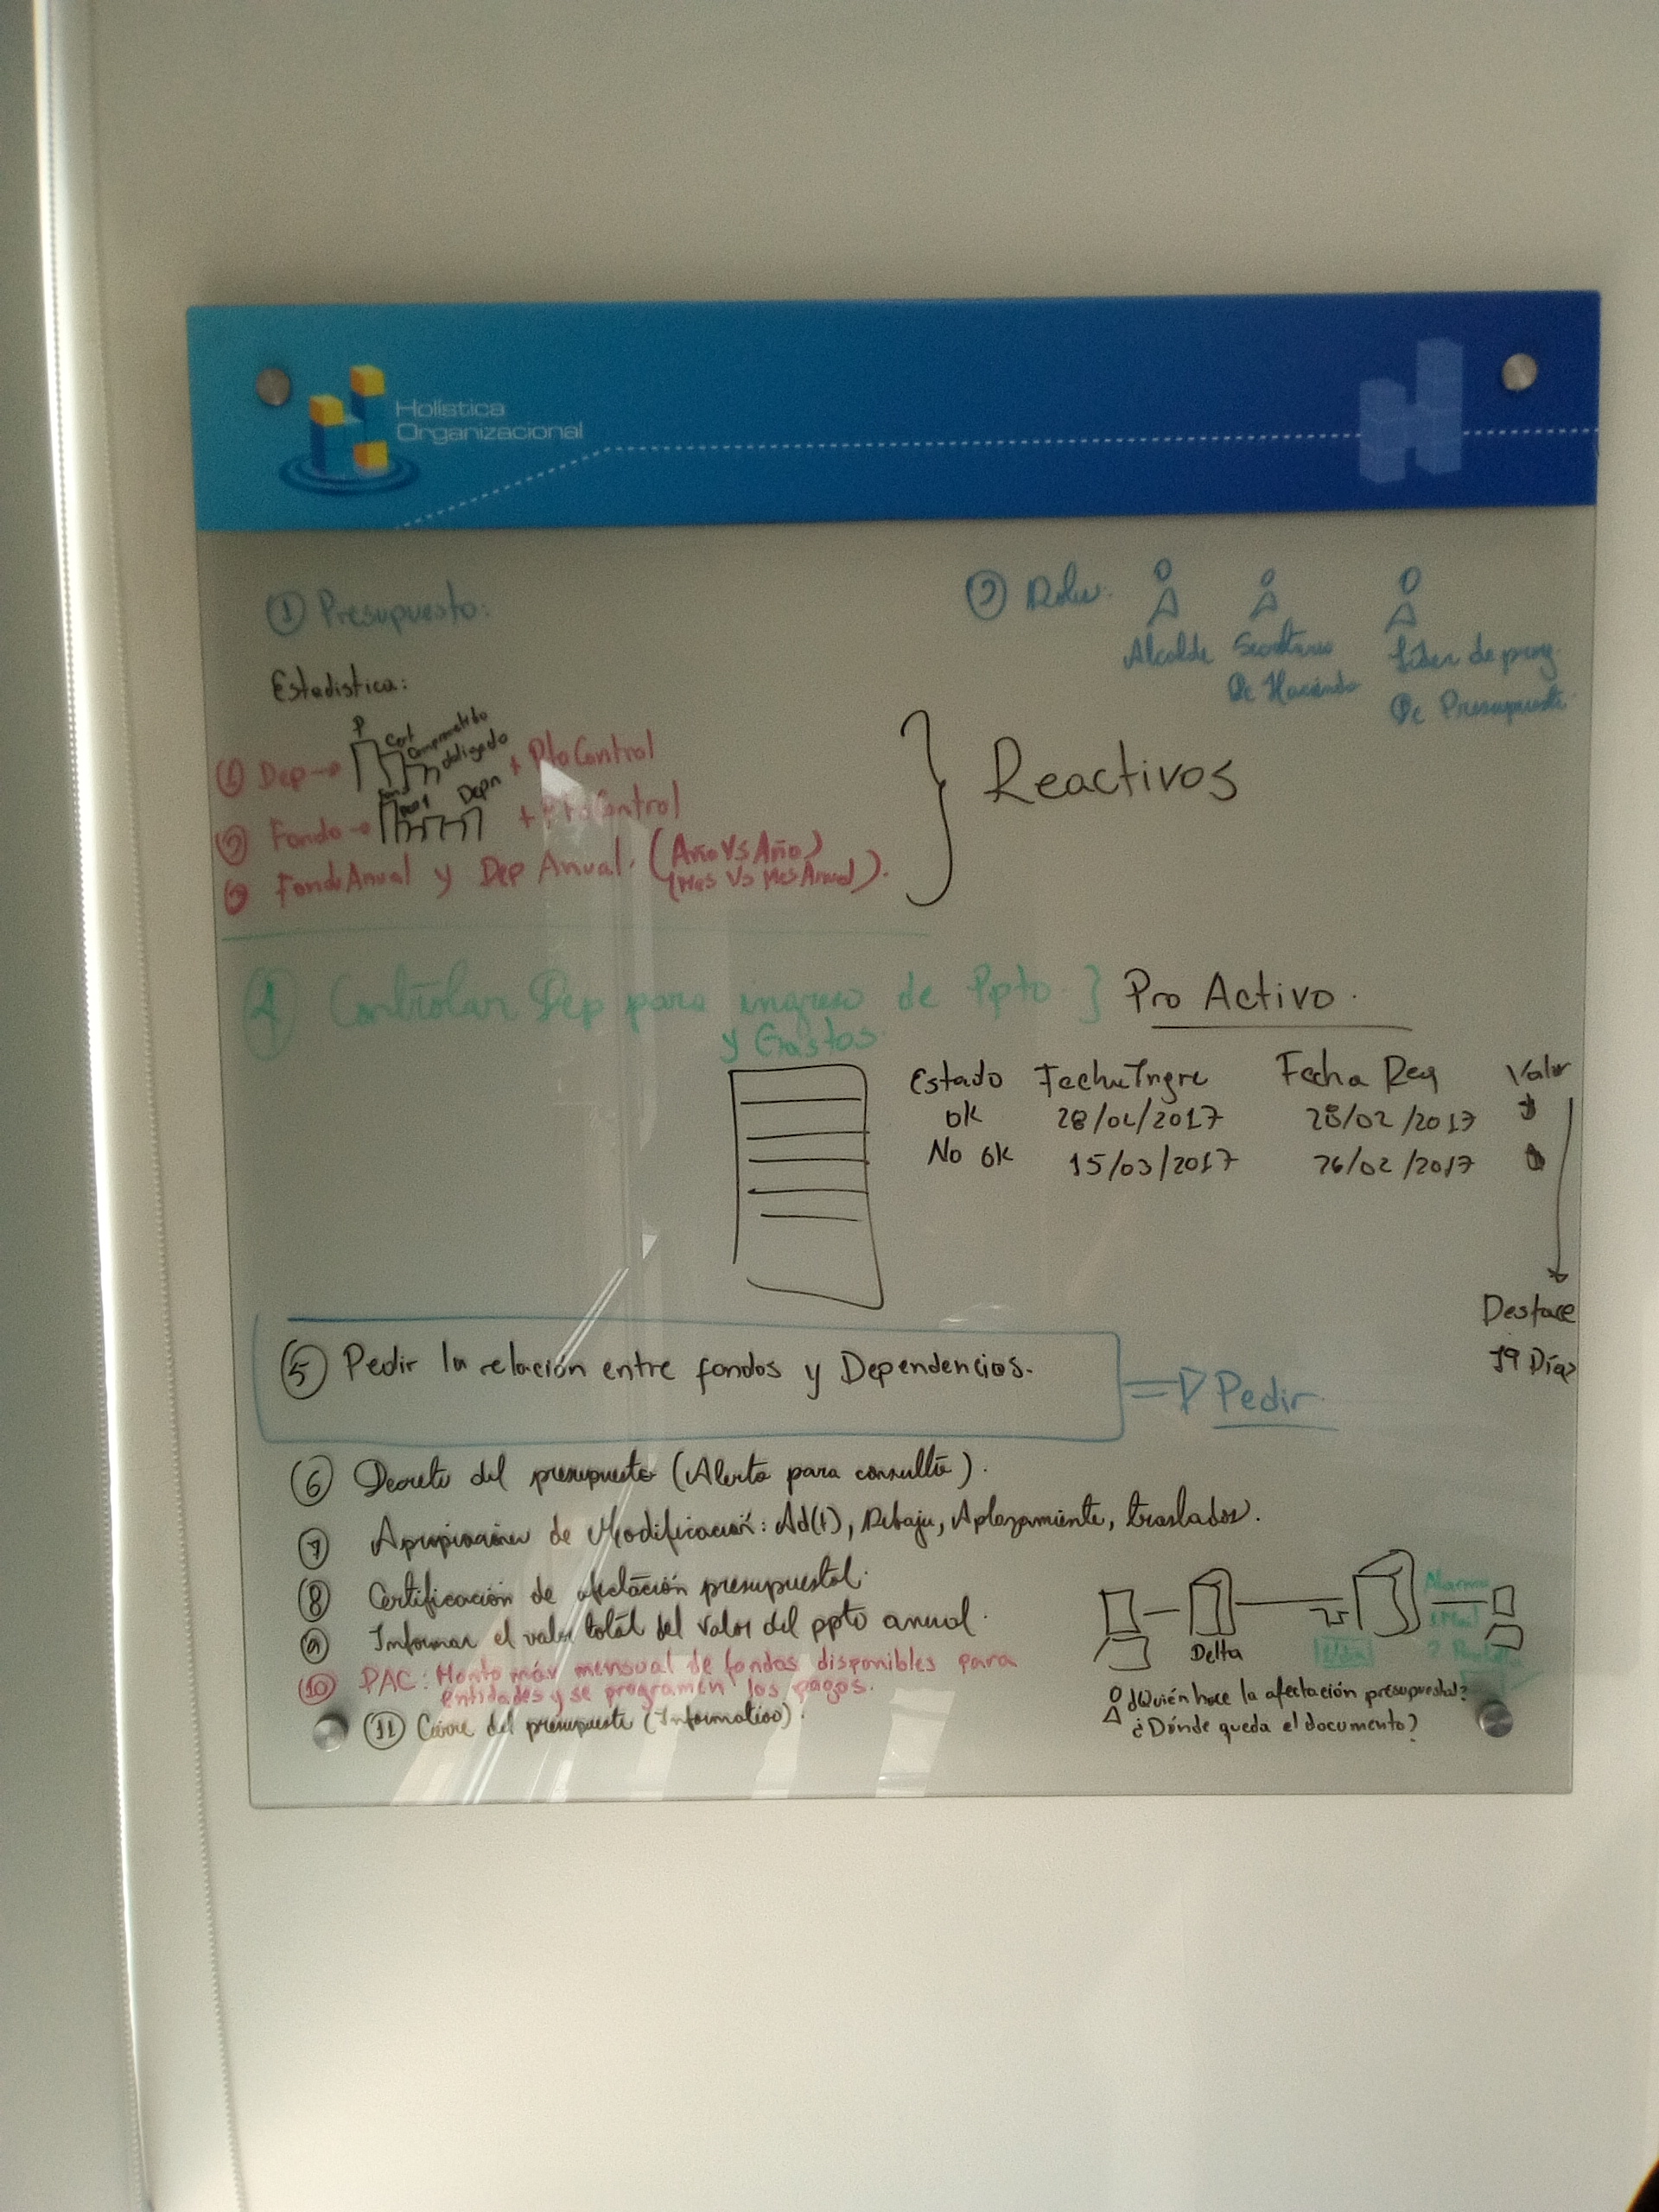 Holística
Organizacional
① Presupuesto:
② Roles.
Alcalde
Secretario
De Hacienda
Líder de prog.
De Presupuesto
Estadistica:
① Dep → P Cert Comprometido obligado + Pto Control
② Fondo → Dep1 Depn + Pto Control
③ Fondo Anual y Dep Anual. (Año Vs Año)
(Mes Vs Mes Anual).
} Reactivos
4 Controlar Dep para ingreso de Ppto. } Pro Activo.
y Gastos
Estado Fecha Ingre Fecha Req Valor
ok 28/02/2017 28/02/2017 $
No ok 15/03/2017 26/02/2017 $
Desface
19 Días
⑤ Pedir la relación entre fondos y Dependencias.
⇒ Pedir
⑥ Decreto del presupuesto (Alerta para consulta).
⑦ Apropiación de Modificación: Ad(1), Rebaja, Aplazamiento, traslados.
⑧ Certificación de afectación presupuestal.
⑨ Informar el valor total del valor del ppto anual.
⑩ PAC: Monto máx mensual de fondos disponibles para
entidades y se programen los pagos.
⑪ Cierre del presupuesto (Informativo).
Delta
Alarma
¿Quién hace la afectación presupuestal?
¿Dónde queda el documento?